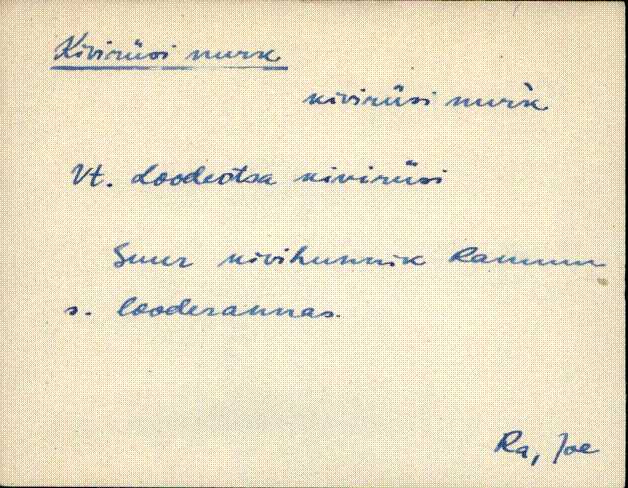 Kivirüsi nurk
kivirüsi nurk̀
Vt. Loodeotsa kivirüsi
Suur kivihunnik Rammu
s. looderannas.
Ra, Joe